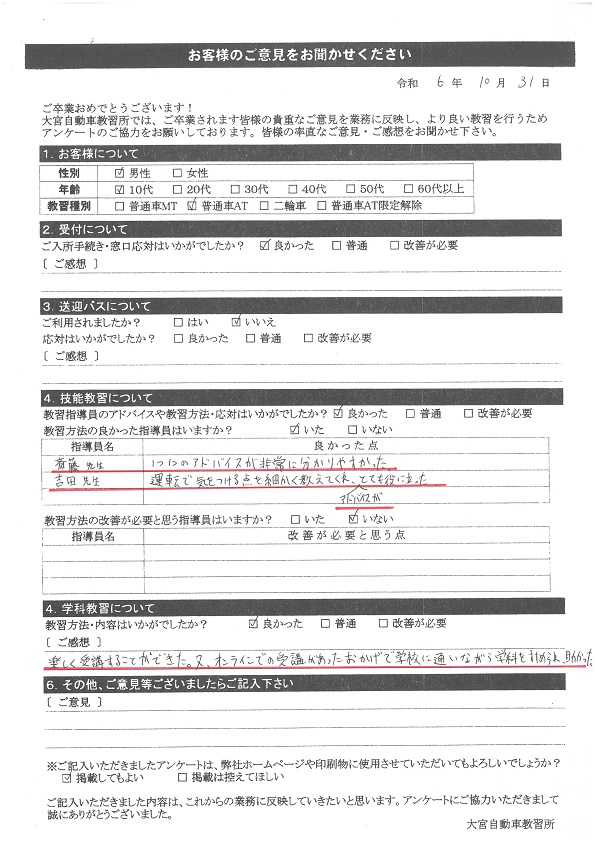 お客様のご意見をお聞かせください
令和 6 年 10 月 31 日
ご卒業おめでとうございます！
大宮自動車教習所では、ご卒業されます皆様の貴重なご意見を業務に反映し、より良い教習を行うため
アンケートのご協力をお願いしております。皆様の率直なご意見・ご感想をお聞かせ下さい。
1. お客様について
性別 ☑ 男性 □ 女性
年齢 ☑ 10代 □ 20代 □ 30代 □ 40代 □ 50代 □ 60代以上
教習種別 □ 普通車MT ☑ 普通車AT □ 二輪車 □ 普通車AT限定解除
2. 受付について
ご入所手続き・窓口応対はいかがでしたか？ ☑ 良かった □ 普通 □ 改善が必要
〔 ご感想 〕
3. 送迎バスについて
ご利用されましたか？ □ はい ☑ いいえ
応対はいかがでしたか？ □ 良かった □ 普通 □ 改善が必要
〔 ご感想 〕
4. 技能教習について
教習指導員のアドバイスや教習方法・応対はいかがでしたか？ ☑ 良かった □ 普通 □ 改善が必要
教習方法の良かった指導員はいますか？ ☑ いた □ いない
指導員名 良かった点
斉藤 先生 1つ1つのアドバイスが非常に分かりやすかった
吉田 先生 運転で気をつける点を細かく教えてくれ、とても役に立った
アドバイスが
教習方法の改善が必要と思う指導員はいますか？ □ いた ☑ いない
指導員名 改善が必要と思う点
4. 学科教習について
教習方法・内容はいかがでしたか？ ☑ 良かった □ 普通 □ 改善が必要
〔 ご感想 〕
楽しく受講することができた。又、オンラインでの受講があったおかげで学校に通いながら学科を進められ、助かった
6. その他、ご意見等ございましたらご記入下さい
〔 ご意見 〕
※ご記入いただきましたアンケートは、弊社ホームページや印刷物に使用させていただいてもよろしいでしょうか？
☑ 掲載してもよい □ 掲載は控えてほしい
ご記入いただきました内容は、これからの業務に反映していきたいと思います。アンケートにご協力いただきまして
誠にありがとうございました。
大宮自動車教習所